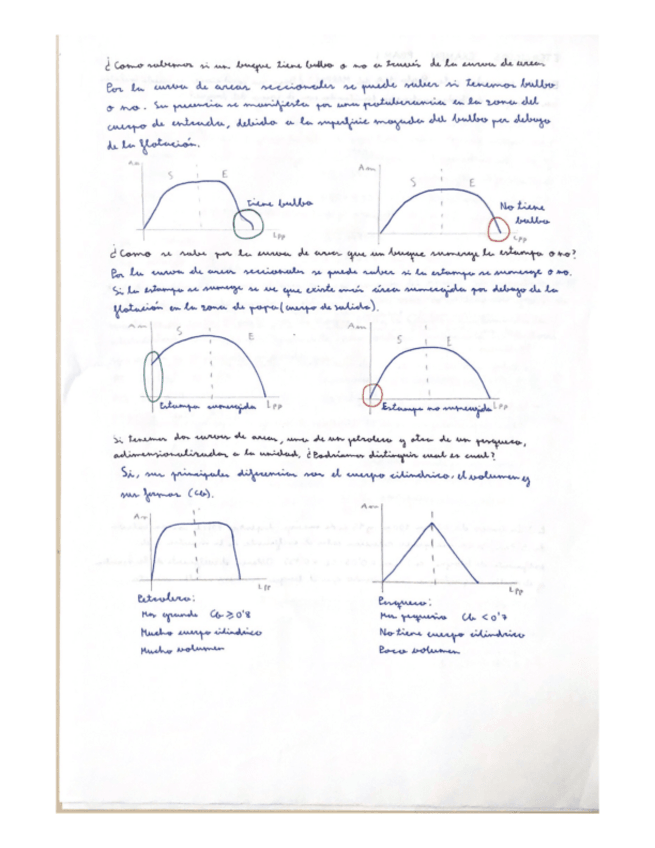 ¿Como sabemos si un buque tiene bulbo o no a través de la curva de areas
Por la curva de areas seccionales se puede saber si tenemos bulbo
o no. Su presencia se manifiesta por una protuberancia en la zona del
cuerpo de entrada, debido a la superficie mojada del bulbo por debajo
de la flotación.
Am S E Tiene bulbo Lpp
Am S E No tiene bulbo Lpp
¿Como se sabe por la curva de areas que un buque sumerge la estampa o no?
Por la curva de areas seccionales se puede saber si la estampa se sumerge o no.
Si la estampa se sumerge se ve que existe más área sumergida por debajo de la
flotación en la zona de popa (cuerpo de salida).
Am S E Estampa sumergida Lpp
Am S E Estampa no sumergida Lpp
Si tenemos dos curvas de areas, una de un petrolero y otra de un pesquero,
adimensionalizadas a la unidad, ¿Podríamos distinguir cual es cual?
Si, sus principales diferencias son el cuerpo cilíndrico, el volumen y
sus formas (Cb).
Am Lpp
Am Lpp
Petrolero:
Mas grande Cb ≥ 0'8
Mucho cuerpo cilindrico
Mucho volumen
Pesquero:
Mas pequeño Cb < 0'7
No tiene cuerpo cilindrico
Poco volumen